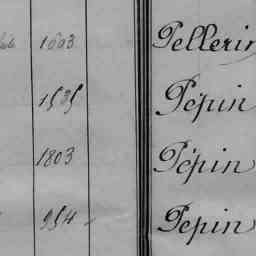 1003 Pellerin
1535 Pépin
1803 Pépin
954 Pepin